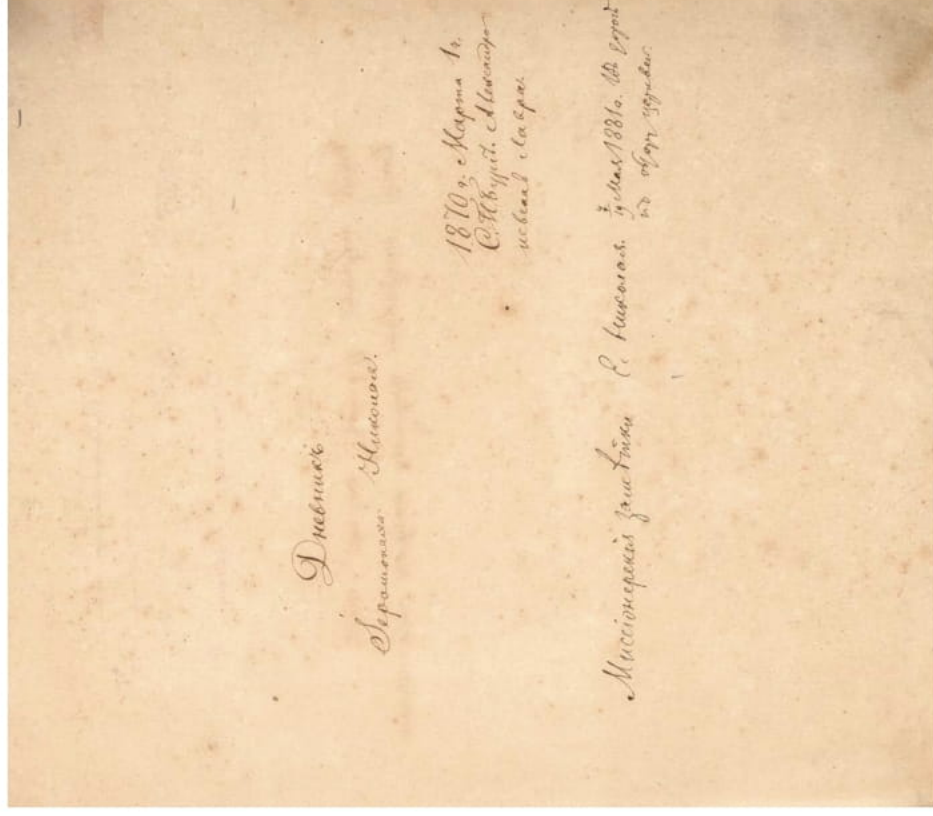 Дневникъ
Іеромонаха Николая.
1870 г. Марта 1 г.
С.Пбургъ. Александро
невская Лавра.
Миссіонерскія замѣтки Е. Николая. Мая 1881 г. Въ дорогѣ
по церквей.